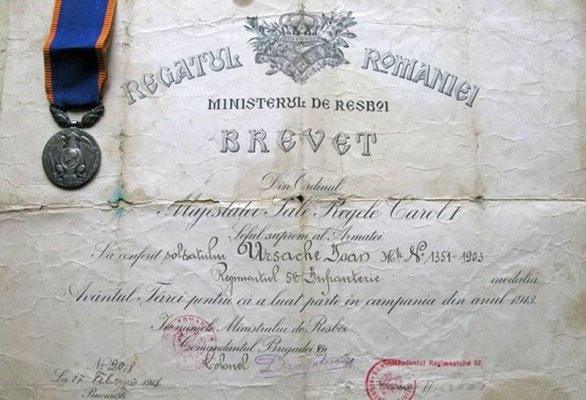 REGATUL ROMANIEI
MINISTERUL DE RESBOI
BREVET
Din Ordinul
Majestatei Sale Regele Carol I
Șeful suprem al Armatei
S'a conferit soldatului Ursache Ioan Mtr No 1351-1903
Regimentul 52 Infanterie medalia
Avântul Țărei pentru că a luat parte în campania din anul 1913.
In numele Ministrului de Resboi
Comandantul Brigadei
Colonel
Comandantul Regimentului 52
No
La 17 Februarie 1914
București